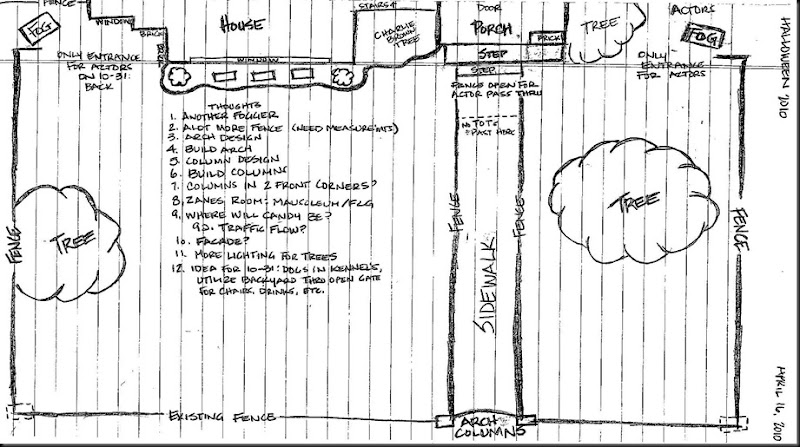 FENCE
WINDOW
BRICK
HOUSE
STAIRS
CHARLIE
BROWN
TREE
DOOR
PORCH
BRICK
TREE
ACTORS
FOG
FOG
HALLOWEEN 2010
ONLY ENTRANCE
FOR ACTORS
ON 10-31:
BACK
WINDOW
STEP
STEP
ONLY
ENTRANCE
FOR ACTORS
FENCE OPEN FOR
ACTOR PASS THRU
NO TOTS
PAST HERE
THOUGHTS
1. ANOTHER FOGGER
2. ALOT MORE FENCE (NEED MEASUREMENTS)
3. ARCH DESIGN
4. BUILD ARCH
5. COLUMN DESIGN
6. BUILD COLUMNS
7. COLUMNS IN 2 FRONT CORNERS?
8. ZANES ROOM: MAUSOLEUM/FLG
9. WHERE WILL CANDY BE?
9a. TRAFFIC FLOW?
10. FACADE?
11. MORE LIGHTING FOR TREES
12. IDEA FOR 10-31: DOGS IN KENNELS,
UTILIZE BACKYARD THRU OPEN GATE
FOR CHAIRS, DRINKS, ETC.
FENCE
TREE
FENCE
FENCE
SIDEWALK
TREE
FENCE
EXISTING FENCE
ARCH
COLUMNS
APRIL 16, 2010